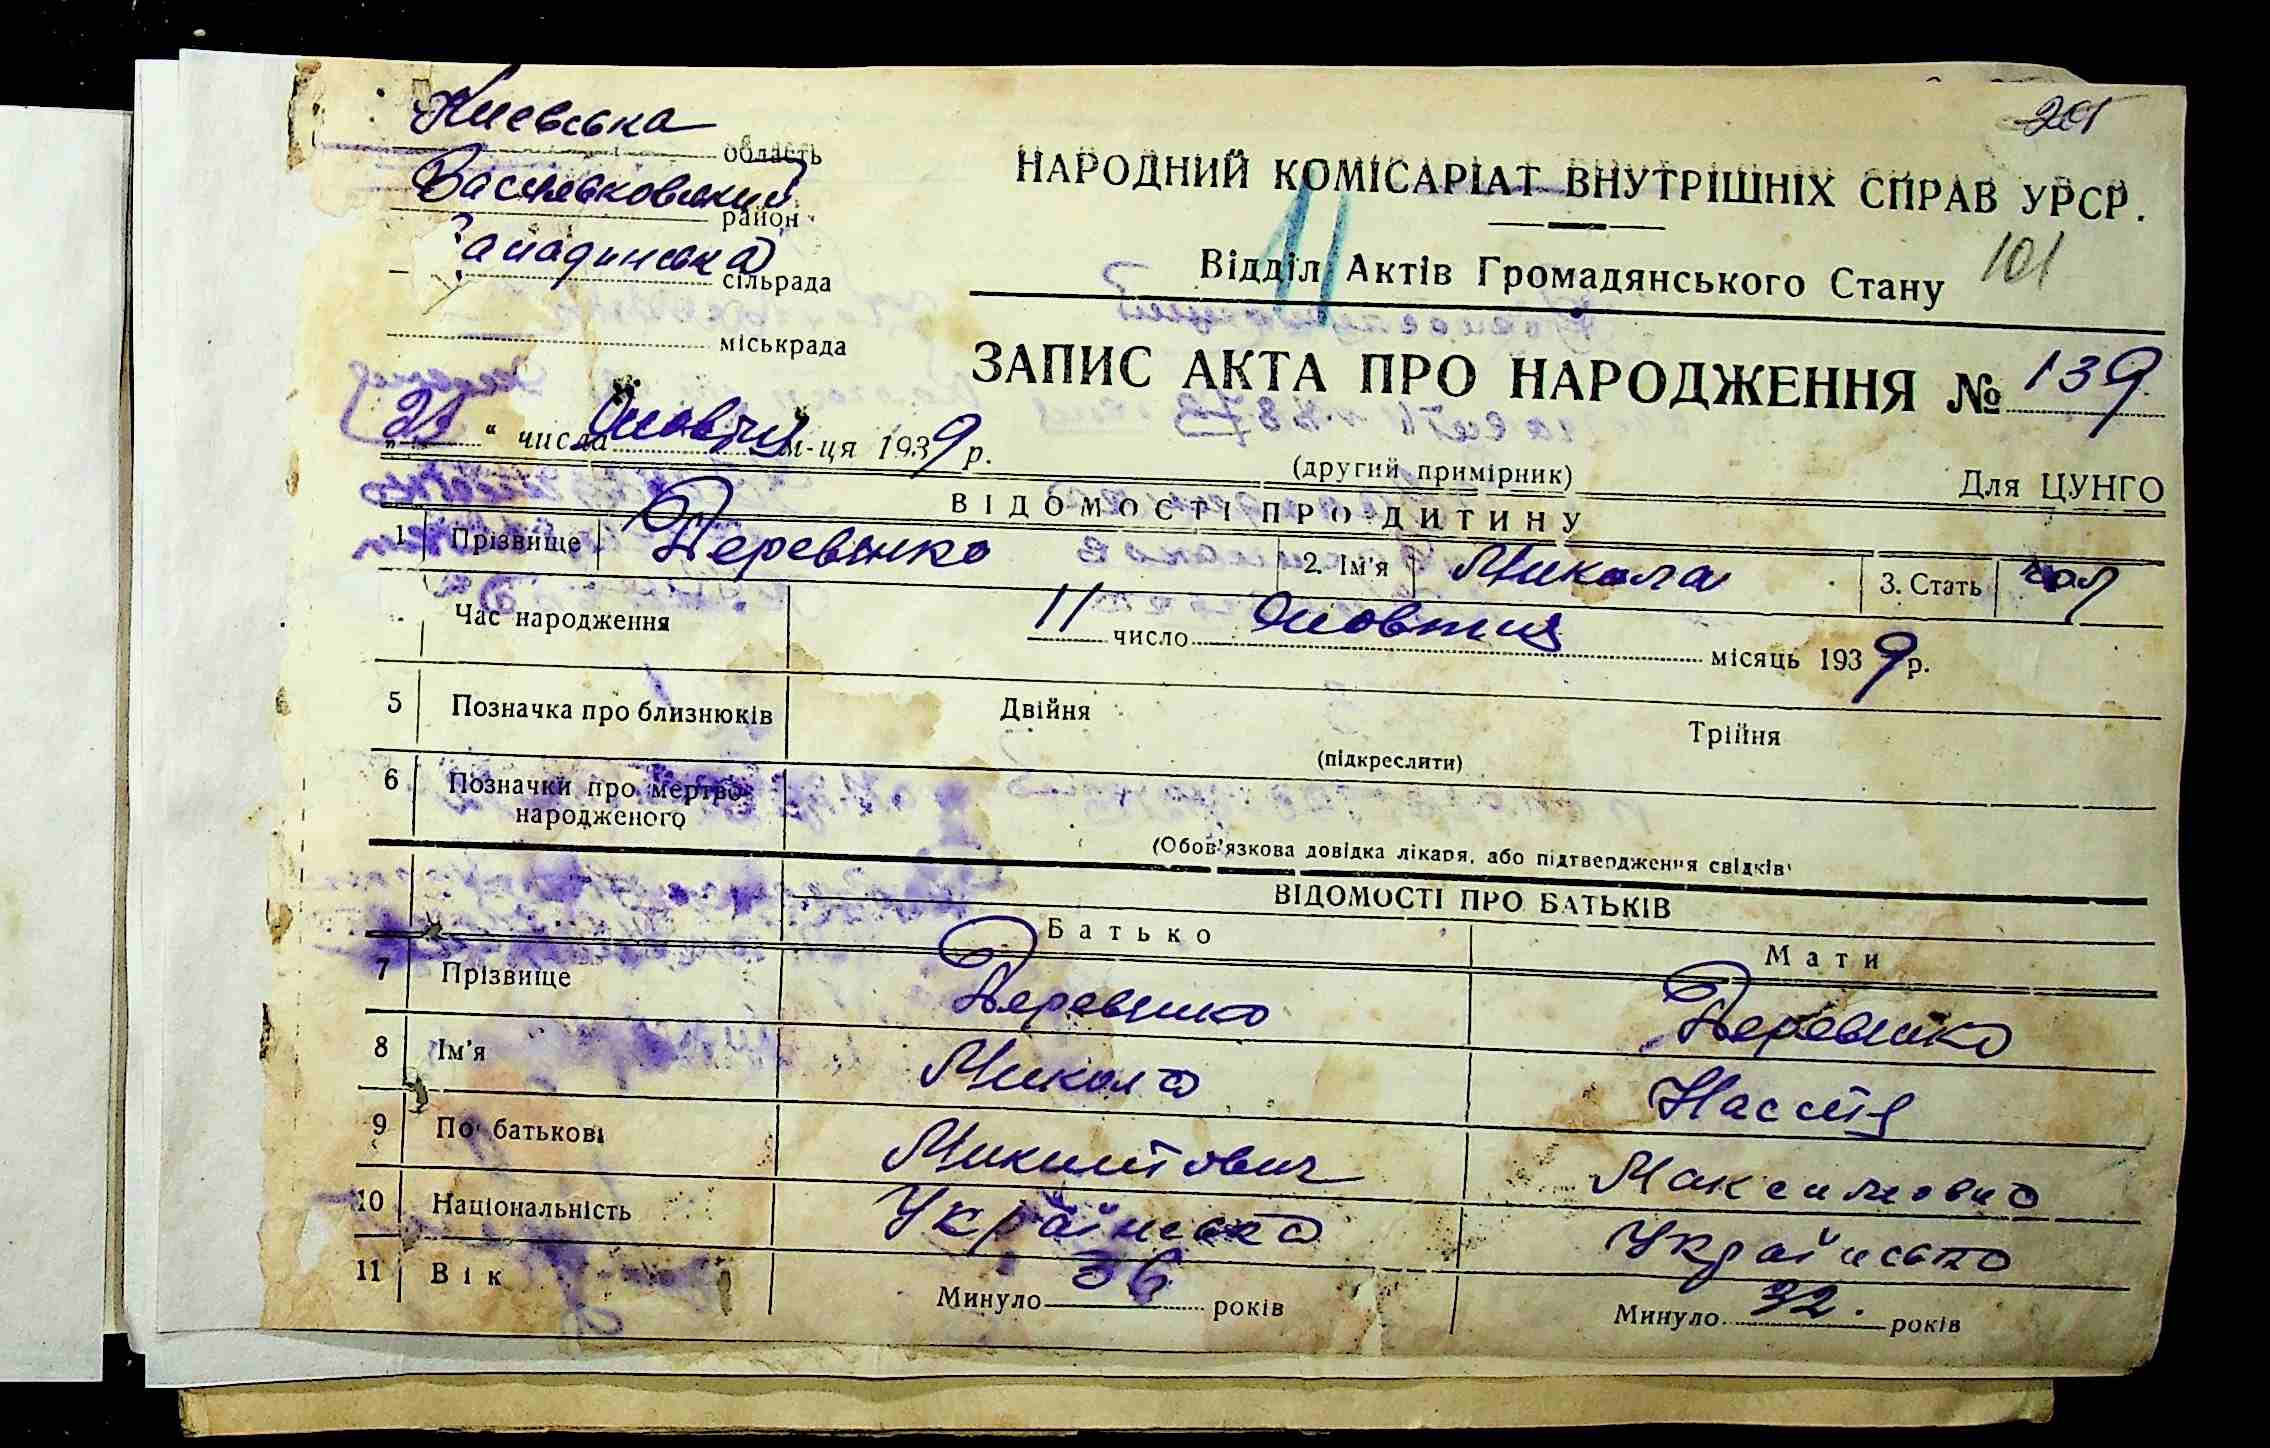 Киевська область
Васильковський район
Западинська сільрада
міськрада
НАРОДНИЙ КОМІСАРІАТ ВНУТРІШНІХ СПРАВ УРСР.
Відділ Актів Громадянського Стану
101
ЗАПИС АКТА ПРО НАРОДЖЕННЯ № 139
„21“ числа Жовтня м-ця 1939 р.
(другий примірник)
Для ЦУНГО
ВІДОМОСТІ ПРО ДИТИНУ
1 Прізвище Деревянко 2. Ім'я Микола 3. Стать чол
Час народження 11 число Жовтня місяць 1939 р.
5 Позначка про близнюків Двійня Трійня
(підкреслити)
6 Позначки про мертво-
народженого
(Обов'язкова довідка лікаря, або підтвердження свідків)
ВІДОМОСТІ ПРО БАТЬКІВ
Батько Мати
7 Прізвище Деревянко Деревянко
8 Ім'я Микола Настя
9 По батькові Микитович Максимовна
10 Національність Українська Українська
11 Вік Минуло 36 років Минуло 32. років